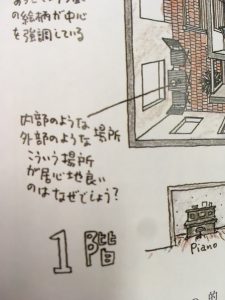 の絵柄が中心
を強調している
内部のような
外部のような場所
こういう場所
が居心地良い
のはなぜでしょう?
1階
Piano
的